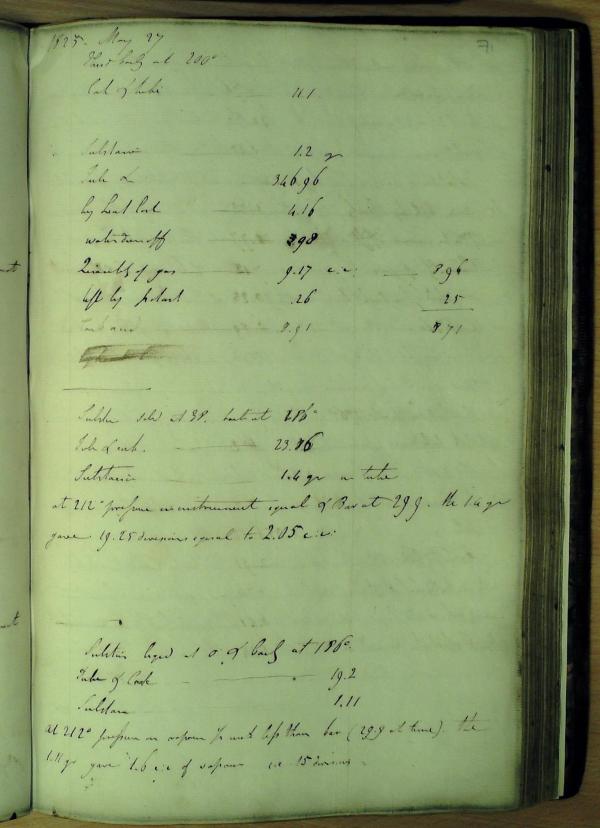 71
1825. May 27
Third boily at 200°
Cork & tube 11.1
Substance 1.2 gr
Tube & 346.96
by heat lost 4.16
water driven off 398
Quantity of gas 9.17 c.i: 8.96
left by potash .26 25
8.91 8.71
Substan solid at 38. boil at 186°
Tube & cork. 23.76
Substance 1.4 gr in tube
at 212° pressure in instrument equal of Bar at 29.9. the 1.4 gr
gave 19.25 divisions equal to 2.05 c.i:
Substan liquid at 0. of boily at 186°
Tube & Cork 19.2
Substan 1.11
at 212° pressure in vapour inch less than bar (29.9 at time). the
1.11 gr gave 1.6 c.i: of vapour or 15 divisions